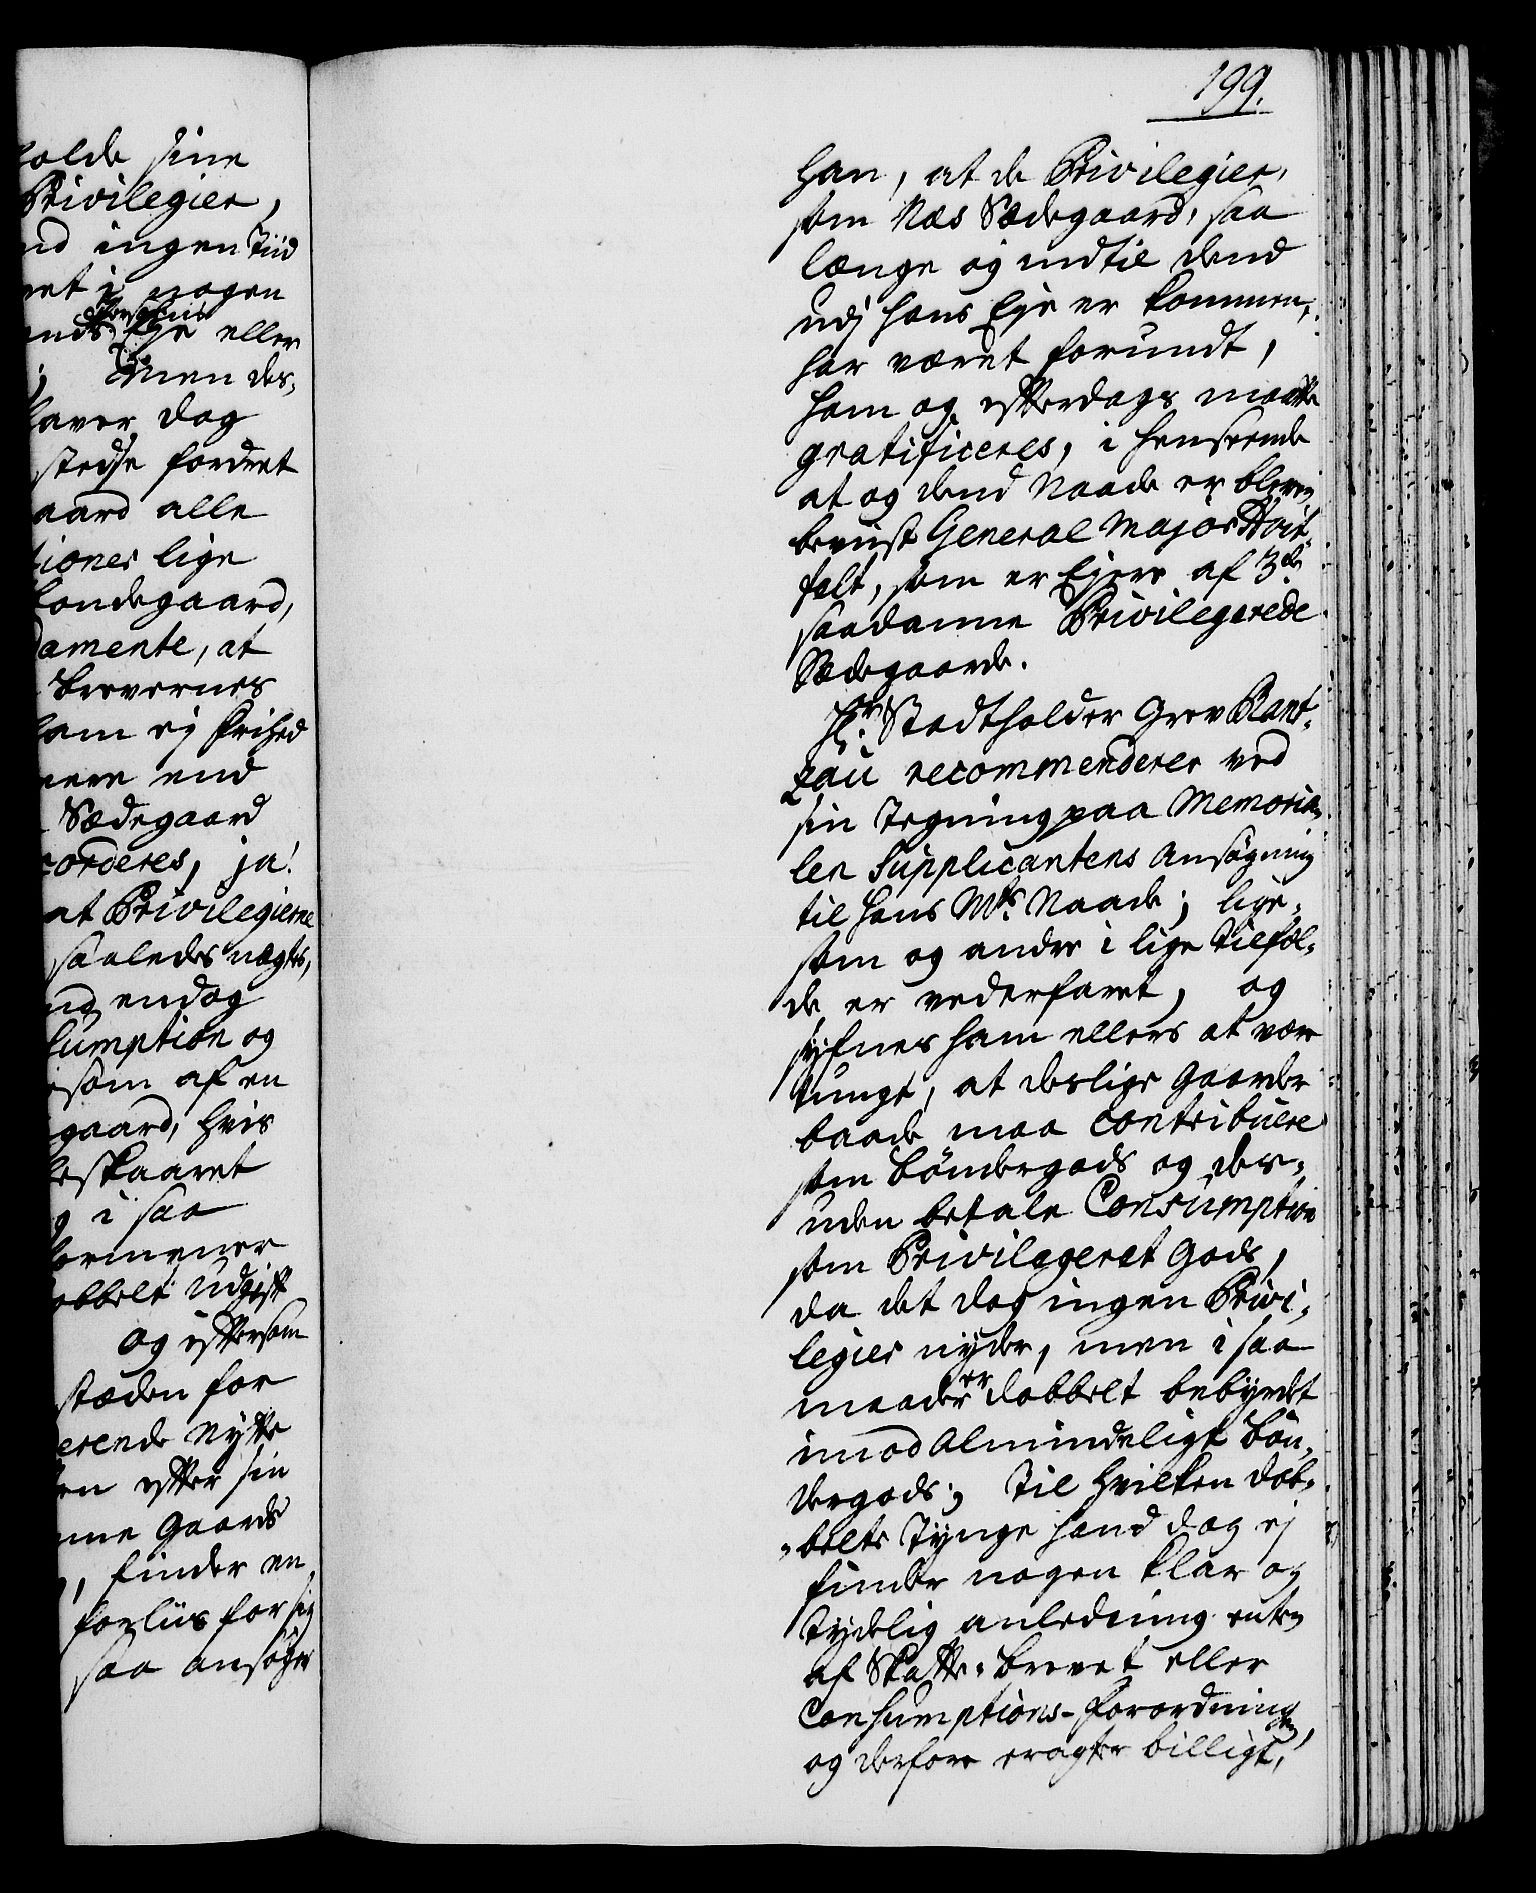 holde sine
Privilegier,
nd ingen Tiid
ret i nogen
Persohns
ands Eje eller
; Men des,
haver dog
stedse fordret
aard alle
tioner lige
bondegaard,
damente, at
brevernes
ham ej frihed
mere end
Sædegaard
corderes, ja!
at Privilegierne
saaledes nægtes,
nd endog
sumption og
som af en
gaard, hvis
beskaaret
g i saa
formener
obbelt Udgift
og eftersom
staden for
erende Nytte
en efter sin
nne Gaards
, finder en
forliis for sig
saa ansøger
199.
han, at de Privilegier,
som Næs Sædegaard, saa
længe og indtil dend
udj hans Eje er kommen,
har været forundt,
ham og efterdags maatte
gratificeres, i henseende
at og dend Naade er bleven
beviist General Major Huit-
felt, som er Ejere af 3de
saadanne Privilegerede
Sædegaarde.
Hr. Stadtholder Grev Rant-
zau recommenderer ved
sin Tegning paa Memoria-
len Supplicantens Ansøgning
til Hans Mts. Naade; lige-
som og andre i lige Tilfæl-
de er vederfaret, og
syfnes ham ellers at være
tungt, at deslige Gaarder
baade maa contribuere
som bøndergods og des-
uden betale Consumption
som Privilegeret Gods,
da det dog ingen Privi-
legier nyder, men i saa
maader er dobbelt bebyrdet
imod Almindeligt bøn-
dergods; Til hvilken dob-
belte Tynge hand dog ej
finder nogen klar og
tydelig anledning enten
af Skatte-brevet eller
Consumptions-Forordningen,
og derfore eragter billigt,